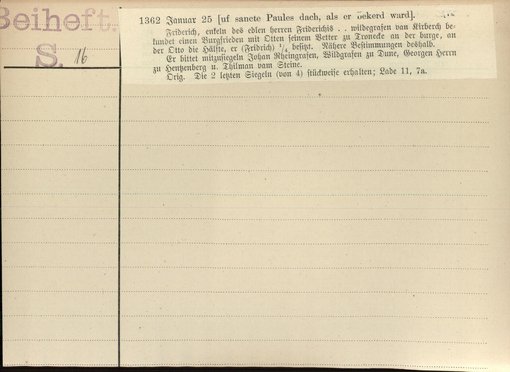 Beiheft.
S. 16
1362 Januar 25 [uf sancte Paules dach, als er bekerd ward].
Friderich, enkeln des edlen herren Friderichis . . wildegrafen van Kirberch be-
kundet einen Burgfrieden mit Otten seinem Vetter zu Tronecke an der burge, an
der Otto die Hälfte, er (Fridrich) 1/4 besitzt. Nähere Bestimmungen deshalb.
Er bittet mitzusiegeln Johan Rheingrafen, Wildgrafen zu Dune, Georgen Herrn
zu Hentzenberg u. Thilman vam Steine.
Orig. Die 2 letzten Siegeln (von 4) stückweise erhalten; Lade 11, 7a.